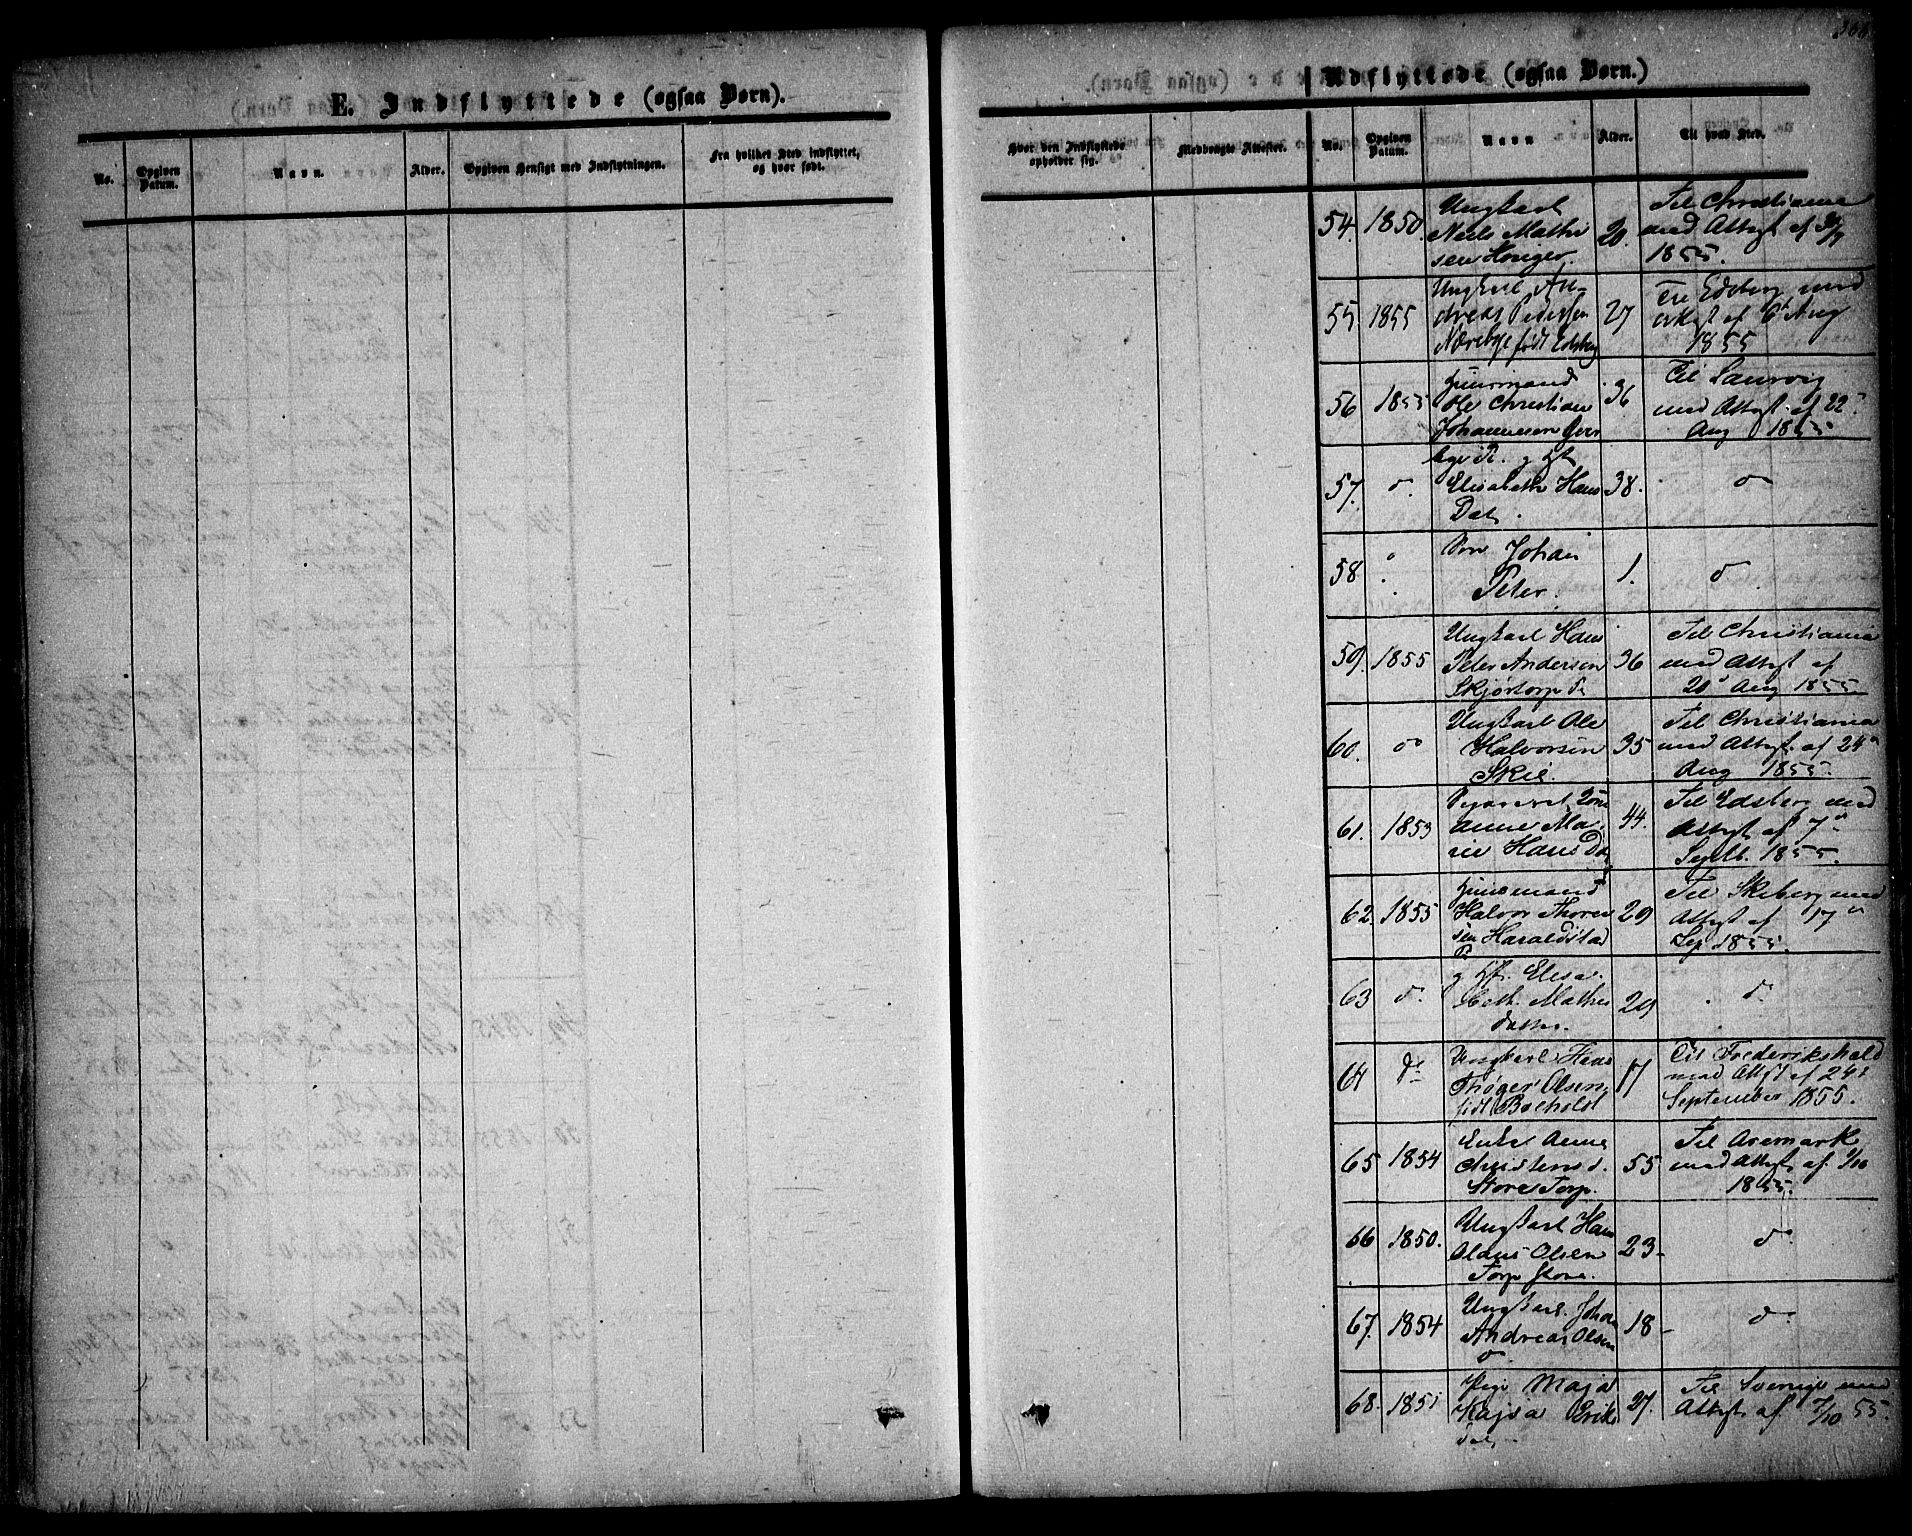 366
E. Indflyttede (ogsaa Børn).
No.
Opgiven Datum.
Navn.
Alder.
Opgiven Hensigt med Indflytningen.
Fra hvilket Sted indflyttet,
og hvor født.
Udflyttede (ogsaa Børn.)
Hvor den Indflyttede
opholder sig.
Medbragte Attester.
No.
Opgiven Datum.
Navn
Alder.
Til hvad Sted.
54. 1850. Ungkarl
Niels Mathi
sen Honger. 20. Til Christiania
med Attest af
1855.
55 1855 Ungkarl An-
dreas Pedersen
Nærebye født Edsberg 27 Til Edsberg med
af 6te Aug
1855
56 1855 Huusmand
Ole Christian
Johannesen 36 Til Laurvig
med Attest af 22
Aug 1855
57. do. g Hft
Elisabeth Hans
Dat. 38. do
58 Søn Johan
Peter. 1. do
59. 1855 Ungkarl Hans
Peter Andersen
Skjørtorp 36 Til Christiania
med Attest af
20 Aug 1855.
60. do Ungkarl Ole
Halvorsen
Skie. 35 Til Christiania
med Attest af 24
Aug 1855.
61. 1853 Separeret Kone
Anne Ma-
rie Hansda 44. Til Edsberg med
Attest af 7
Septb. 1855.
62. 1855 Huusmand
Halvor Thore
sen Haraldstad 29 Til Skiberg med
Attest af 17
Sep 1855.
63 do. g Hft. Elisa-
beth Mathis
datter. 29 do
64 do Ungkarl Hans
Thøger Olsen,
født 17 Til Frederikshald
med Attest af 24
September 1855.
65 1854 Enke Anne
Christens d.
Store Torp. 55 Til Aremark
med Attest af 1/10
1855.
66 1850. Ungkarl Hans
Claus Olsen
Torp store. 23 do
67. 1854 Ungkarl Johan
Andreas Olsen
do 18 do
68. 1851 Pige Maja
Kajsa Eriks
dat. 27. Til Sverige med
Attest af 55.